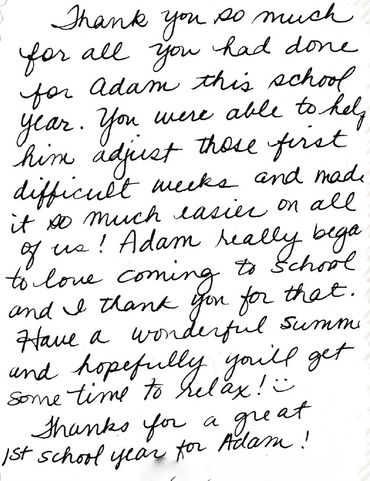 Thank you so much
for all you had done
for Adam this school
year. You were able to help
him adjust those first
difficult weeks and made
it so much easier on all
of us! Adam really bega
to love coming to School
and I thank you for that.
Have a wonderful summe
and hopefully you'll get
some time to relax! :)
Thanks for a great
1st school year for Adam!